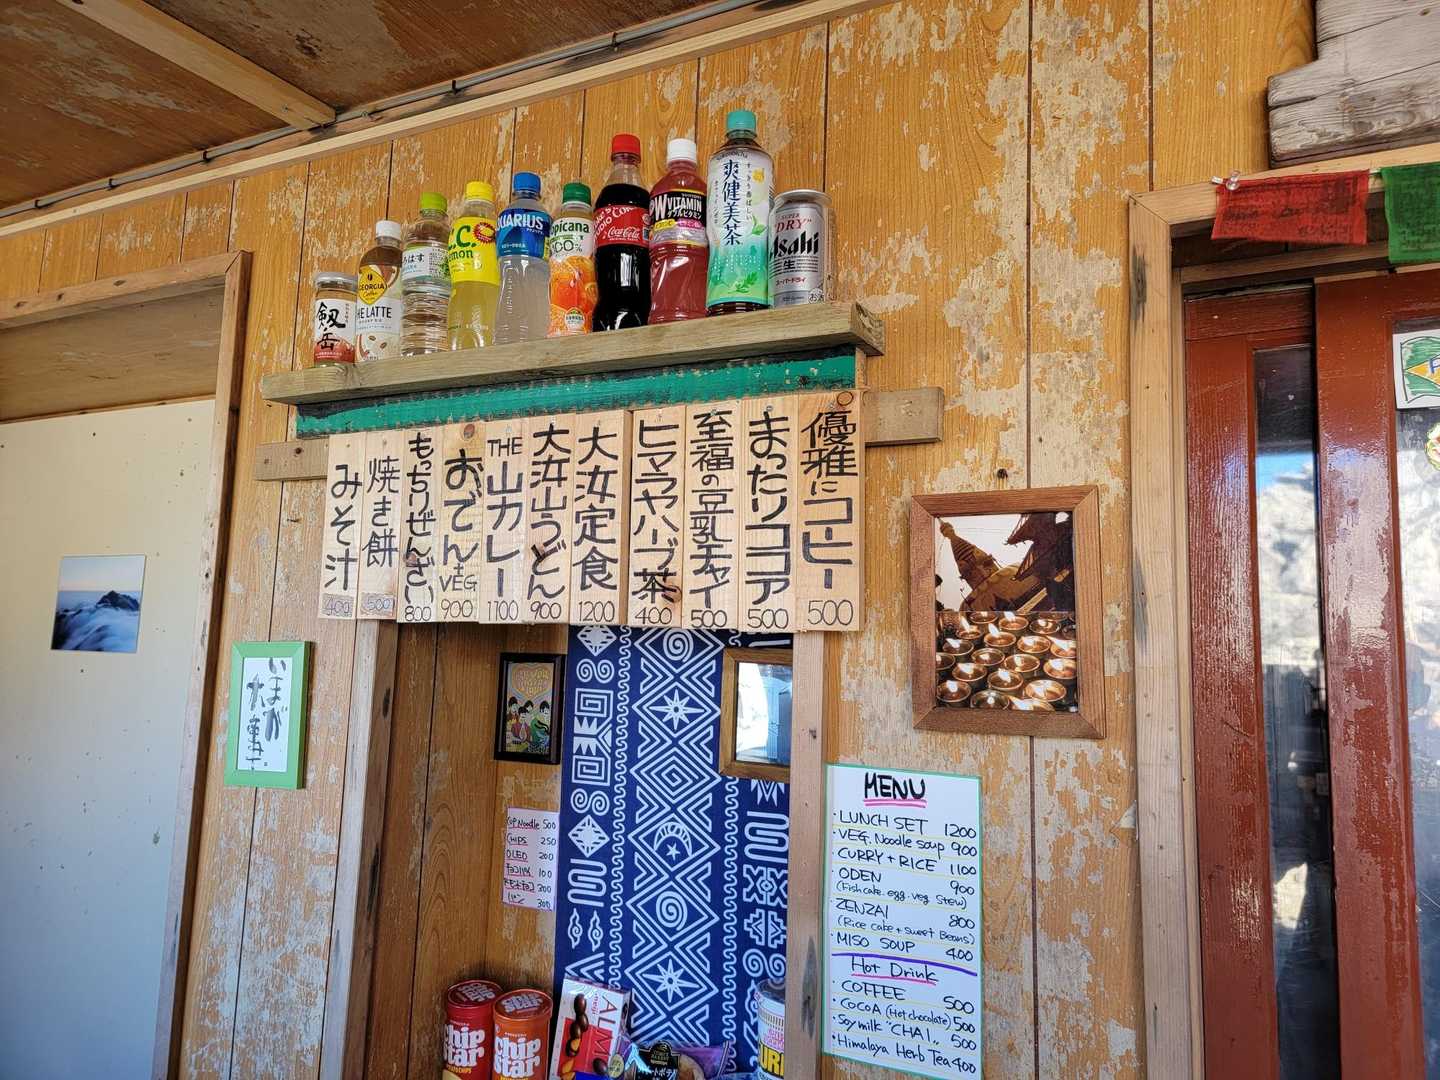 剱岳
GEORGIA
THE LATTE
C.C.
Lemon
AQUARIUS
Tropicana
100%
Coca-Cola
PW VITAMIN
ダブルビタミン
爽健美茶
すっきり香ばしい
SUPER
"DRY"
Asahi
生
スーパードライ
お酒
優雅にコーヒー
500
まったりココア
500
至福の豆乳チャイ
500
ヒマラヤハーブ茶
400
大汝定食
1200
大汝山うどん
900
THE山カレー
1100
おでん
+VEG
900
もっちりぜんざい
800
焼き餅
500
みそ汁
400
いまが
大事
Cup Noodle 500
CHIPS 250
OLEO 200
100
300
300
MENU
・LUNCH SET 1200
・VEG. Noodle soup 900
・CURRY + RICE 1100
・ODEN 900
(Fishcake. egg. veg stew)
・ZENZAI 800
(Rice cake + sweet Beans)
・MISO SOUP 400
Hot Drink
・COFFEE 500
・COCOA (Hot chocolate) 500
・Soy milk "CHAI" 500
・Himalaya Herb Tea 400
chip
star
POTATO CHIPS
chip
star
meiji